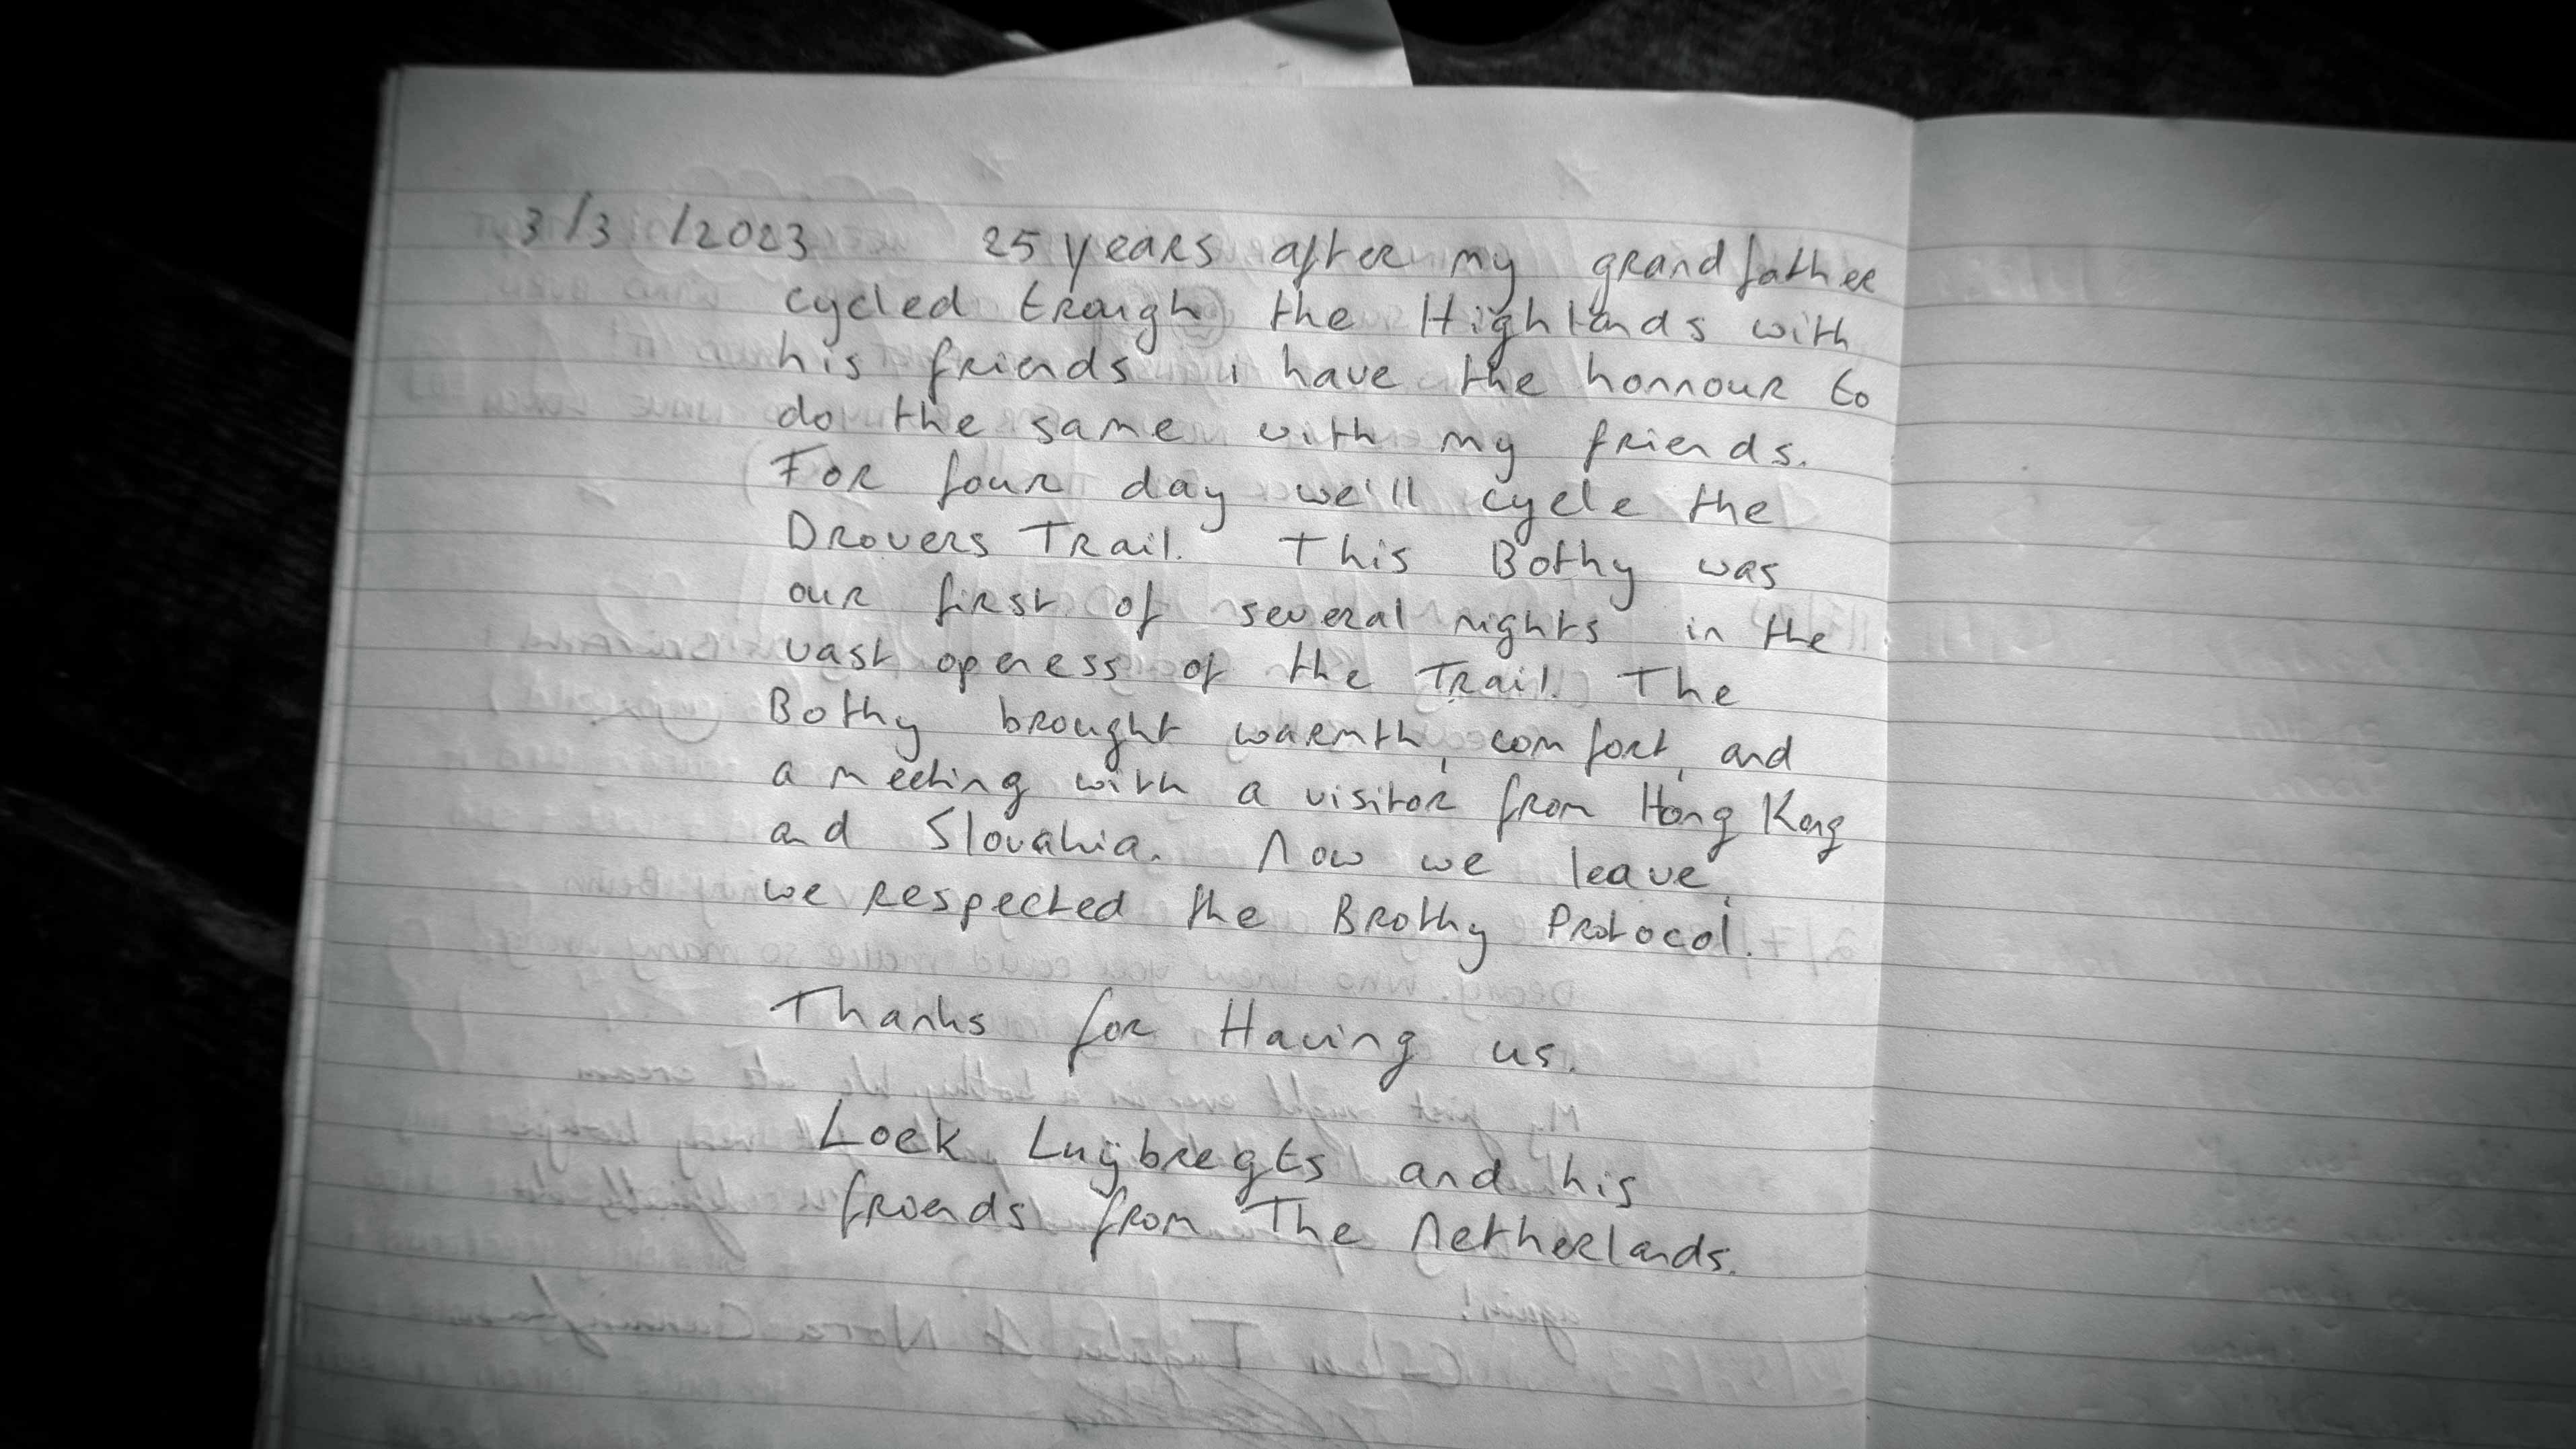 3/3/2023 25 years after my grandfather
cycled trough the Highlands with
his friends i have the honnour to
do the same with my friends.
For four day we'll cycle the
Drovers Trail. This Bothy was
our first of several nights in the
vast openess of the Trail. The
Bothy brought warmth, comfort, and
a meeting with a visitor from Hong Kong
and Slovakia. Now we leave,
we respected the Brothy Protocol.
Thanks for Having us.
Loek Luijbregts and his
friends from The Netherlands.